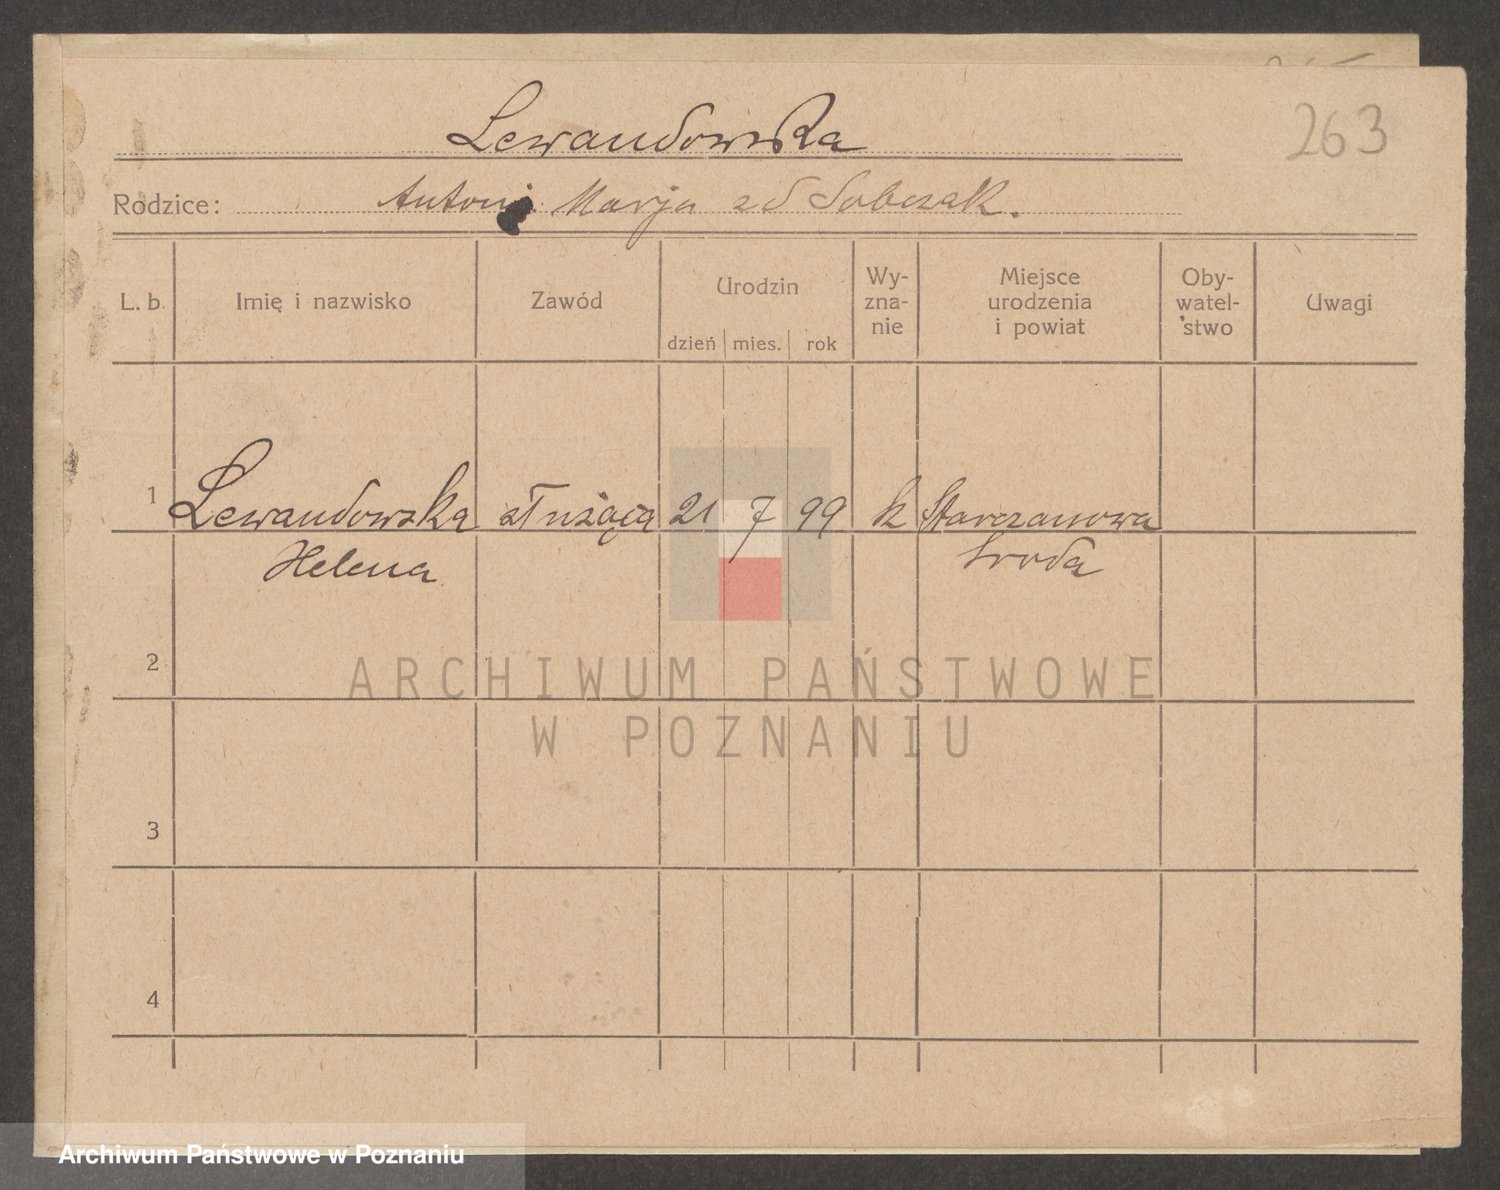 263
Lewandowska
Rodzice: Antoni Marja zd Sobczak.
L. b. Imię i nazwisko Zawód Urodzin dzień mies. rok Wy-zna-nie Miejsce urodzenia i powiat Oby-watel-stwo Uwagi
1 Lewandowska służąca 21 7 99 k Starczanowa
Helena Środa
2
3
4
ARCHIWUM PAŃSTWOWE
W POZNANIU
Archiwum Państwowe w Poznaniu